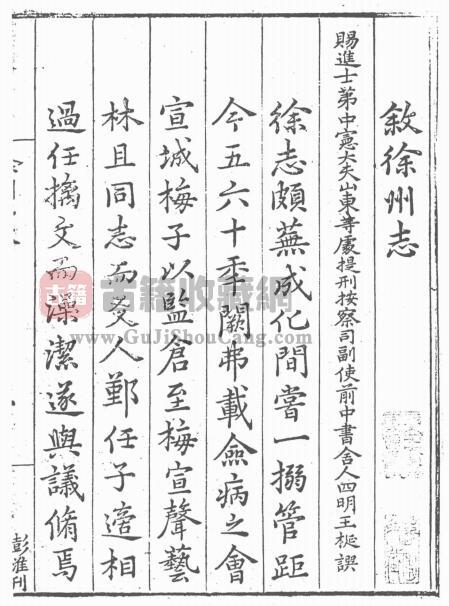 敘徐州志
賜進士第中憲大夫山東等處提刑按察司副使前中書舍人四明王梴譔
徐志頗蕪成化間嘗一搦管距
今五六十季闕弗載僉病之會
宣城梅子以監倉至梅宣聲藝
林且同志而
人鄞任子適相
過任摛文而澡潔遂與議脩焉
彭淮刊
古籍
古籍收藏网
www.GuJiShouCang.com